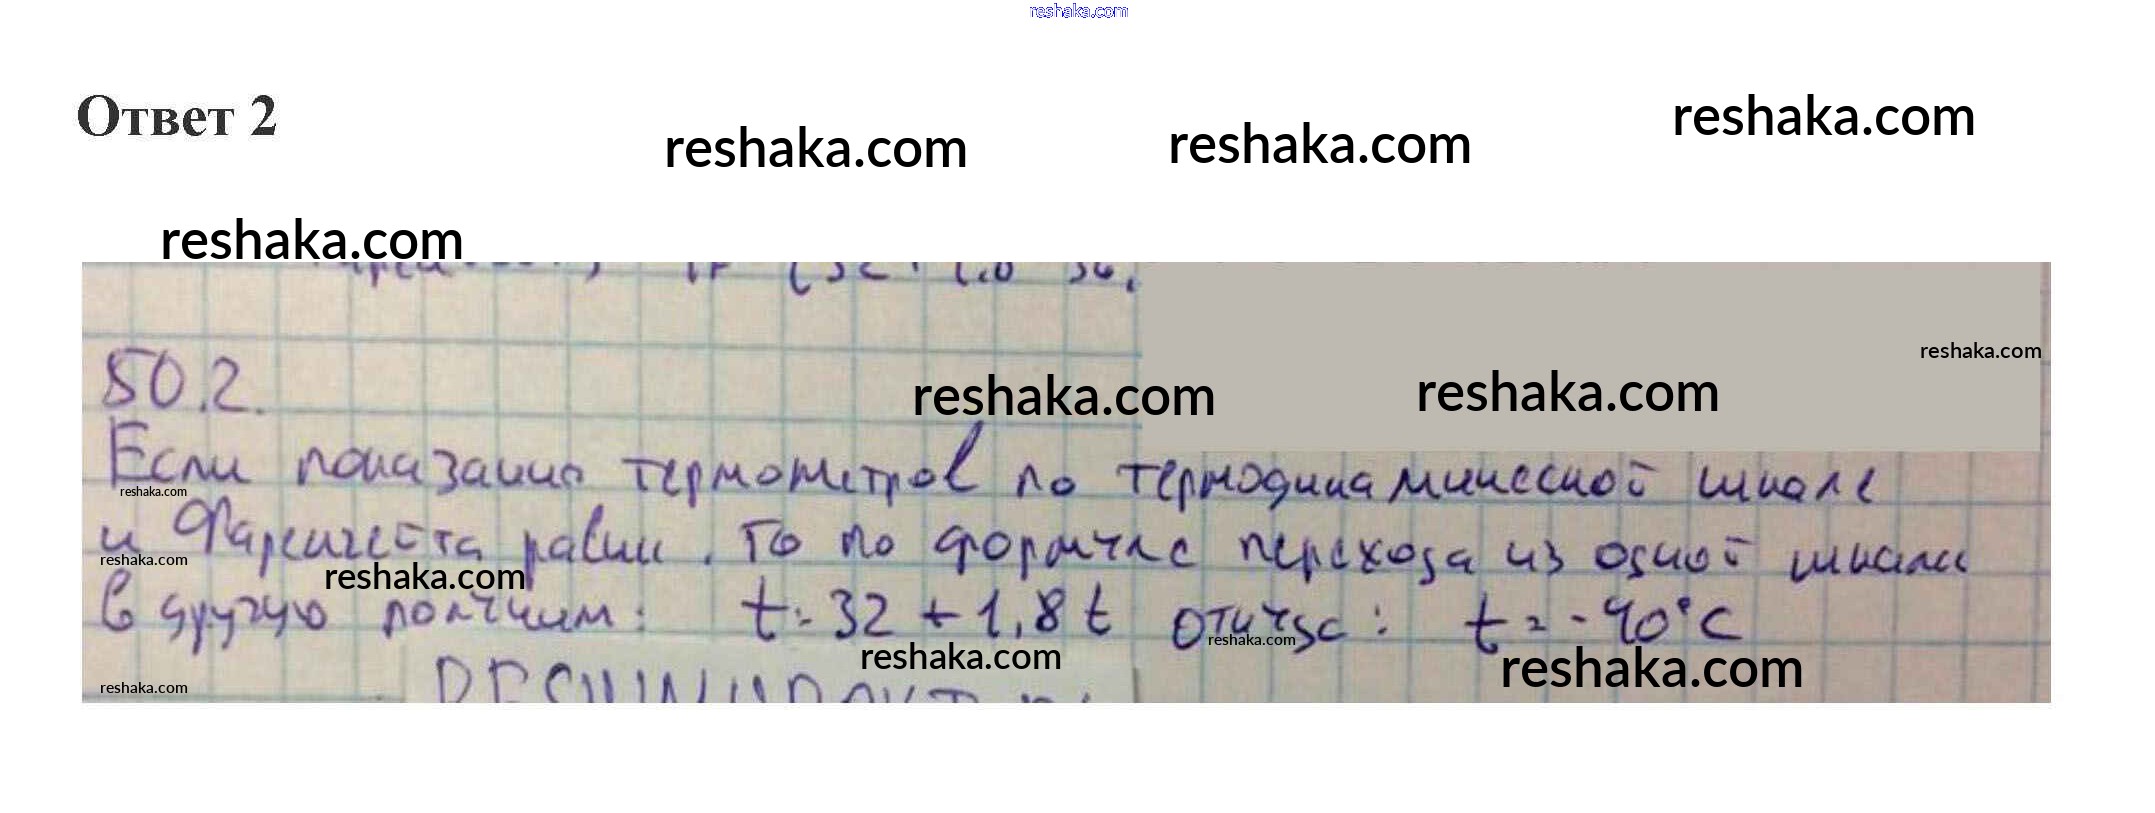 reshaka.com
Ответ 2
reshaka.com reshaka.com reshaka.com
reshaka.com
reshaka.com
50.2.
reshaka.com reshaka.com
Если показания термометров по термодинамической шкале
reshaka.com
и Фаренгейта равны, то по формуле перехода из одной шкалы
reshaka.com
reshaka.com
в другую получим: t = 32 + 1,8t откуда: t = -40°C
reshaka.com
reshaka.com
reshaka.com
reshaka.com